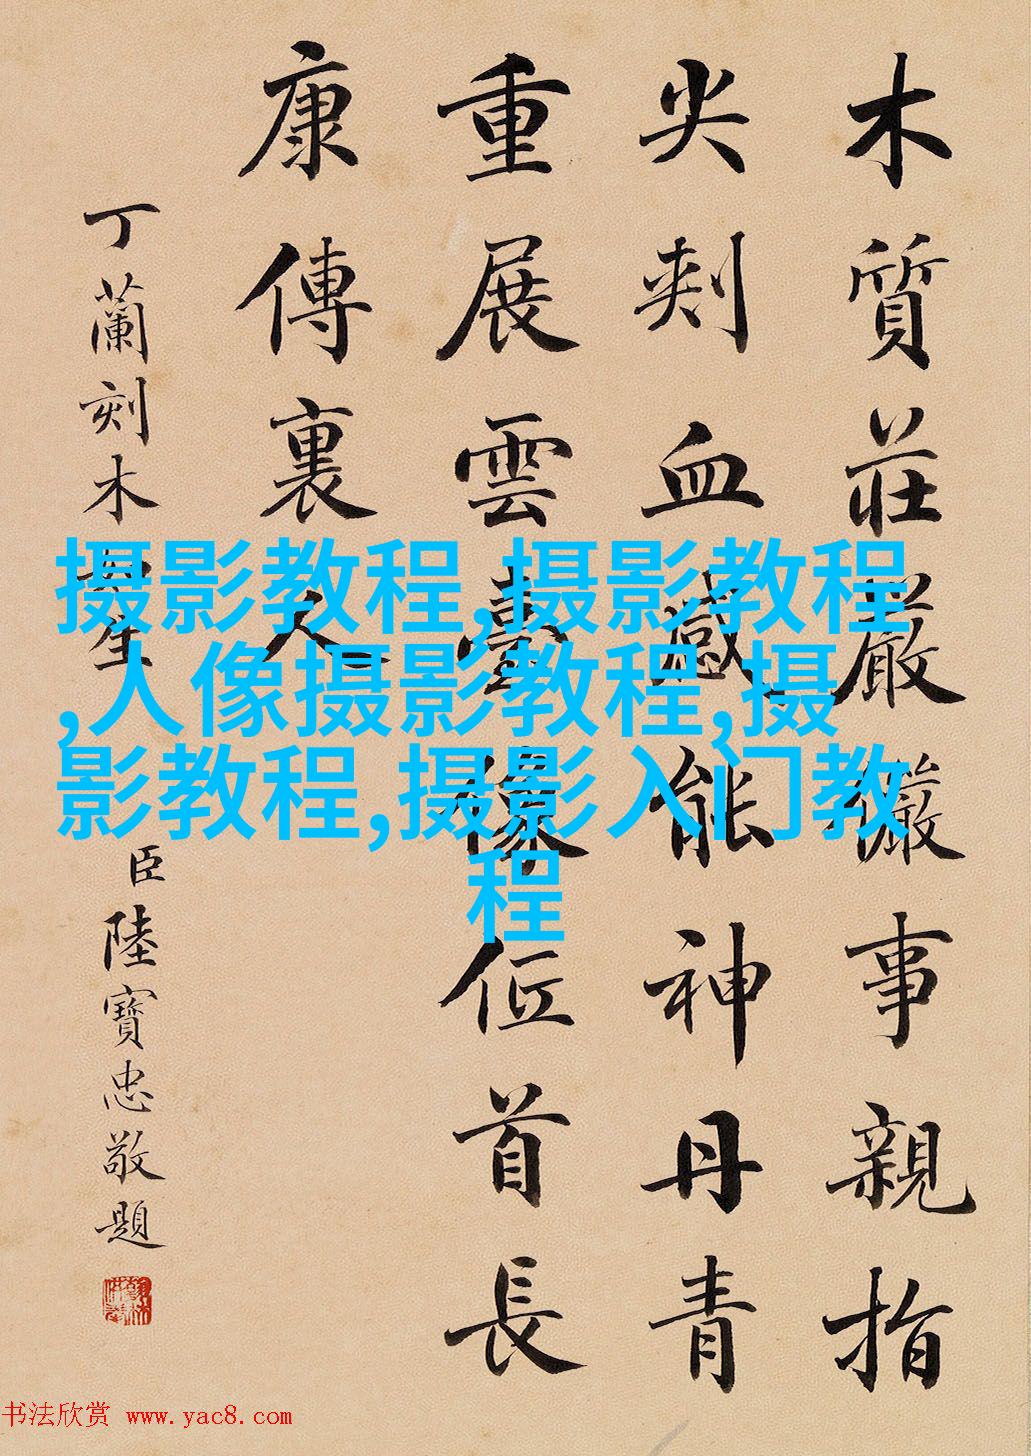 木質莊嚴儼事親指
尖刾血感能神丹青
重展雲臺像位首長
康傳裏人
丁蘭刻木生
臣陸寶忠敬題
摄影教程,摄影教程
,人像摄影教程,摄
影教程,摄影入门教
程
书法欣赏 www.yac8.com